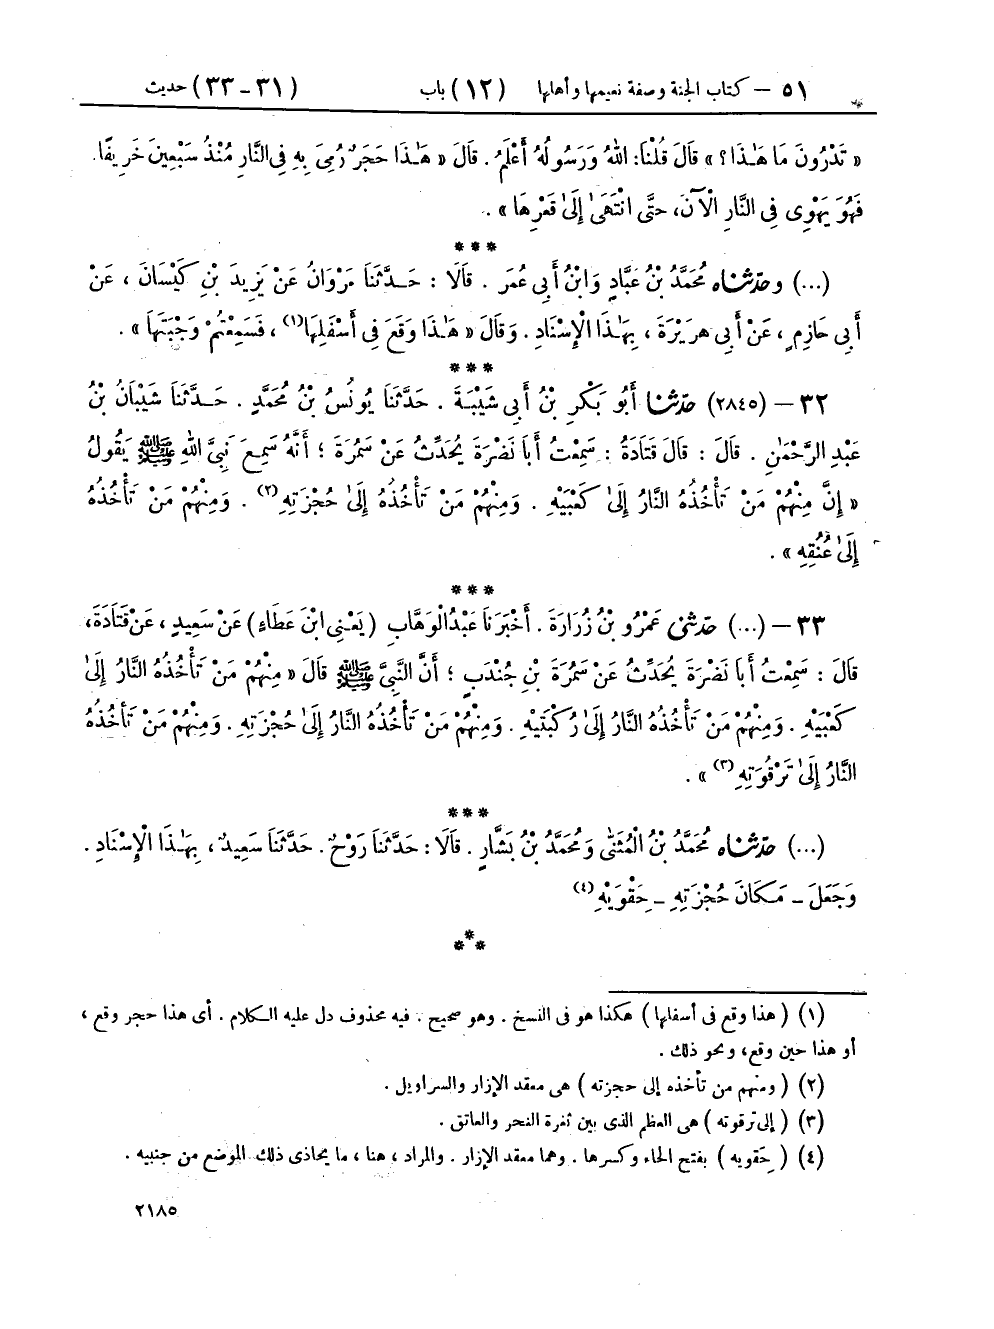 ٥١ – كتاب الجنة وصفة نعيمها وأهلها (١٢) باب (٣١-٣٣) حديث
« تَدْرُونَ مَا هَـٰذَا ؟ » قَالَ قُلْنَا: اللهُ وَرَسُولُهُ أَعْلَمُ . قَالَ « هَـٰذَا حَجَرٌ رُمِىَ بِهِ فِى النَّارِ مُنْذُ سَبْعِينَ خَرِيفًا.
فَهُوَ يَهْوِى فِى النَّارِ الْآنَ، حَتَّى انْتَهَىٰ إِلَىٰ قَعْرِهَا » .
***
(...) وحدّثناه مُحَمَّدُ بْنُ عَبَّادٍ وَابْنُ أَبِى عُمَرَ . قَالَا : حَدَّثَنَا مَرْوَانُ عَنْ يَزِيدَ بْنِ كَيْسَانَ ، عَنْ
أَبِى حَازِمٍ ، عَنْ أَبِى هُرَيْرَةَ ، بِهَـٰذَا الْإِسْنَادِ . وَقَالَ « هَـٰذَا وَقَعَ فِى أَسْفَلِهَا(١) ، فَسَمِعْتُمْ وَجْبَتَهَا » .
***
٣٢ – (٢٨٤٥) حدّثنا أَبُو بَكْرِ بْنُ أَبِى شَيْبَةَ . حَدَّثَنَا يُونُسُ بْنُ مُحَمَّدٍ . حَدَّثَنَا شَيْبَانُ بْنُ
عَبْدِ الرَّحْمَٰنِ . قَالَ : قَالَ قَتَادَةُ : سَمِعْتُ أَبَا نَضْرَةَ يُحَدِّثُ عَنْ سَمُرَةَ ؛ أَنَّهُ سَمِعَ نَبِىَّ اللهِ ﷺ يَقُولُ
« إِنَّ مِنْهُمْ مَنْ تَأْخُذُهُ النَّارُ إِلَىٰ كَعْبَيْهِ . وَمِنْهُمْ مَنْ تَأْخُذُهُ إِلَىٰ حُجْزَتِهِ(٢) . وَمِنْهُمْ مَنْ تَأْخُذُهُ
إِلَىٰ عُنُقِهِ » .
***
٣٣ – (...) حدّثنى عَمْرُو بْنُ زُرَارَةَ . أَخْبَرَنَا عَبْدُ الْوَهَّابِ (يَعْنِى ابْنَ عَطَاءٍ) عَنْ سَعِيدٍ ، عَنْ قَتَادَةَ،
قَالَ : سَمِعْتُ أَبَا نَضْرَةَ يُحَدِّثُ عَنْ سَمُرَةَ بْنِ جُنْدَبٍ ؛ أَنَّ النَّبِىَّ ﷺ قَالَ « مِنْهُمْ مَنْ تَأْخُذُهُ النَّارُ إِلَىٰ
كَعْبَيْهِ . وَمِنْهُمْ مَنْ تَأْخُذُهُ النَّارُ إِلَىٰ رُكْبَتَيْهِ . وَمِنْهُمْ مَنْ تَأْخُذُهُ النَّارُ إِلَىٰ حُجْزَتِهِ . وَمِنْهُمْ مَنْ تَأْخُذُهُ
النَّارُ إِلَىٰ تَرْقُوَتِهِ(٣) » .
***
(...) حدّثناه مُحَمَّدُ بْنُ الْمُثَنَّى وَمُحَمَّدُ بْنُ بَشَّارٍ . قَالَا: حَدَّثَنَا رَوْحٌ . حَدَّثَنَا سَعِيدٌ ، بِهَـٰذَا الْإِسْنَادِ .
وَجَعَلَ – مَكَانَ حُجْزَتِهِ – حِقْوَيْهِ(٤)
***
(١) ( هذا وقع فى أسفلها ) هكذا هو فى النسخ . وهو صحيح . فيه محذوف دل عليه الكلام . أى هذا حجر وقع ،
أو هذا حين وقع، ونحو ذلك .
(٢) ( ومنهم من تأخذه إلى حجزته ) هى معقد الإزار والسراويل .
(٣) ( إلى ترقوته ) هى العظم الذى بين ثغرة النحر والعاتق .
(٤) ( حِقويه ) بفتح الحاء وكسرها . وهما معقد الإزار . والمراد ، هنا ، ما يحاذى ذلك الموضع من جنبيه .
٢١٨٥